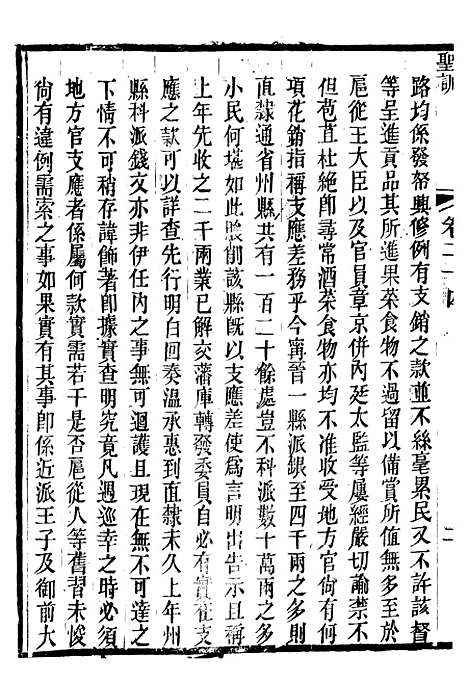 聖訓
卷二十四
二
路均係發帑興修例有支銷之款並不絲毫累民又不許該督
等呈進貢品其所進果菜食物不過留以備賞所值無多至於
扈從王大臣以及官員章京併內廷太監等屢經嚴切諭禁不
但苞苴杜絕卽尋常酒菜食物亦均不准收受地方官尙有何
項花銷指稱支應差務乎今甯晉一縣派銀至四千兩之多則
直隸通省州縣共有一百二十餘處豈不科派數十萬兩之多
小民何堪如此朘削該縣旣以支應差使爲言明出告示且稱
上年先收之二千兩業已解交藩庫轉發委員自必有實在支
應之款可以詳查先行明白回奏溫承惠到直隸未久上年州
縣科派錢文亦非伊任內之事無可迴護且現在無不可達之
下情不可稍存諱飾著卽據實查明究竟凡遇巡幸之時必須
地方官支應者係屬何款實需若干是否扈從人等舊習未悛
尙有違例需索之事如果實有其事卽係近派王子及御前大